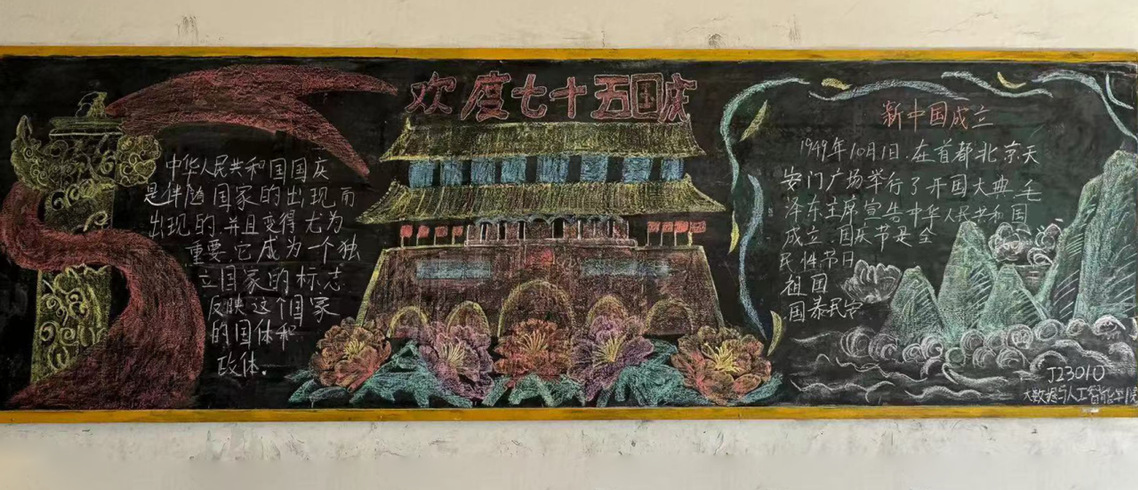 欢度七十五国庆
中华人民共和国国庆
是伴随国家的出现而
出现的,并且变得尤为
重要.它成为一个独
立国家的标志
反映这个国家
的国体和
政体.
新中国成立
1949年10月1日.在首都北京天
安门广场举行了开国大典,毛
泽东主席宣告中华人民共和国
成立.国庆节是全
民性节日
祖国
国泰民安
J23010
大数据与人工智能学院